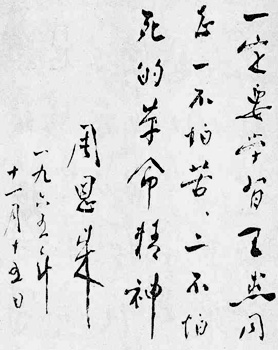 一定要学習王杰同
志一不怕苦、二不怕
死的革命精神
周恩来
一九六五年
十一月十五日